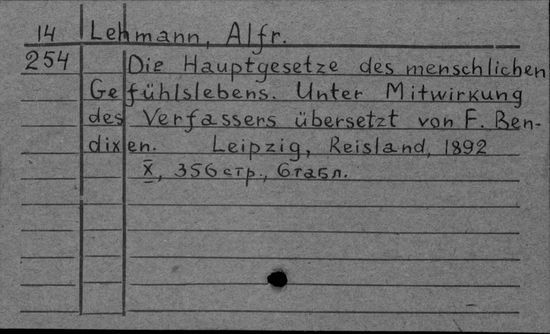 14 Lehmann, Alfr.
254 Die Hauptgesetze des menschlichen
Gefühlslebens. Unter Mitwirkung
des Verfassers übersetzt von F. Ben-
dixen. Leipzig, Reisland, 1892
X, 356 стр., 6 табл.